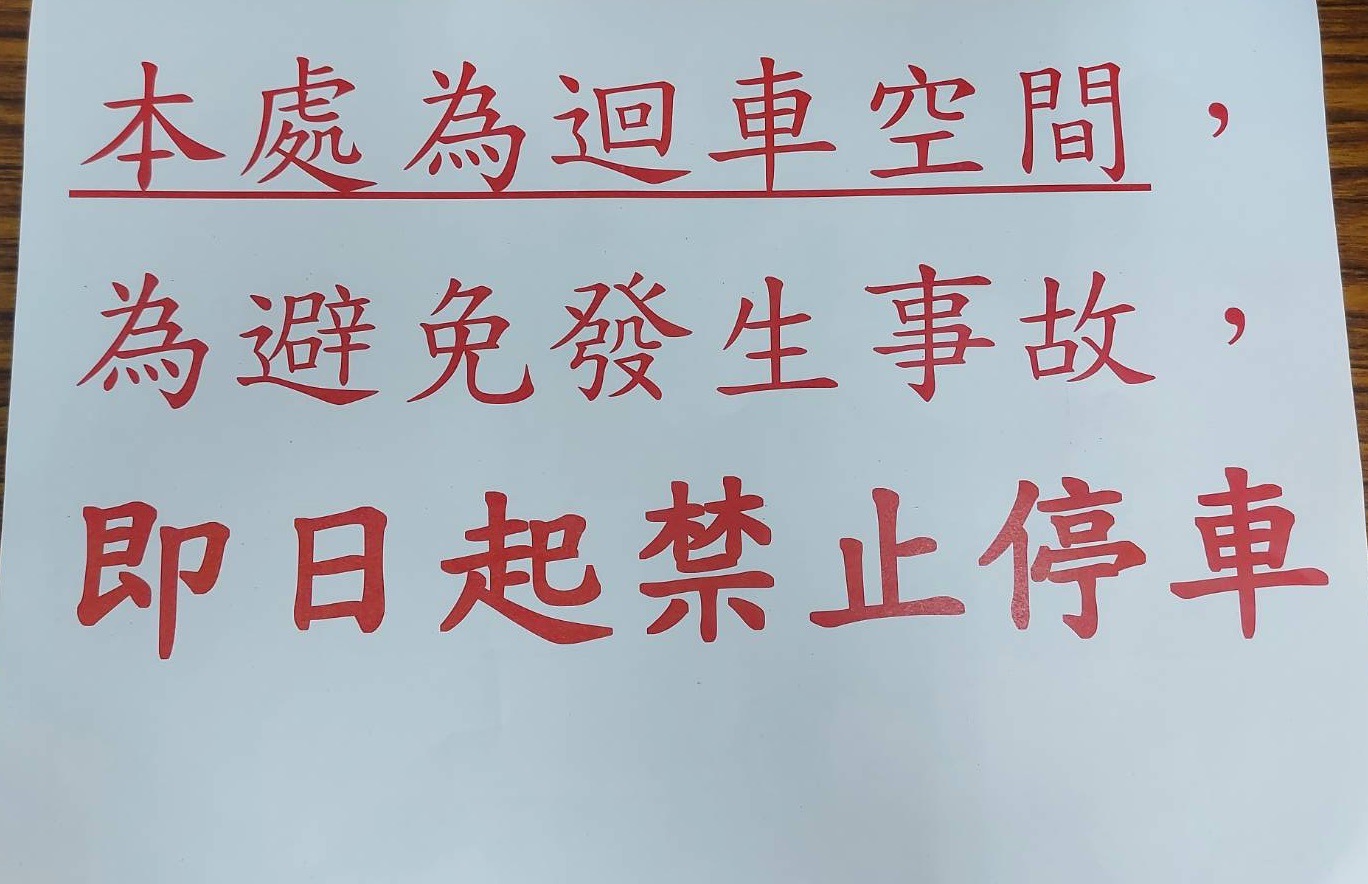 本處為迴車空間，
為避免發生事故，
即日起禁止停車